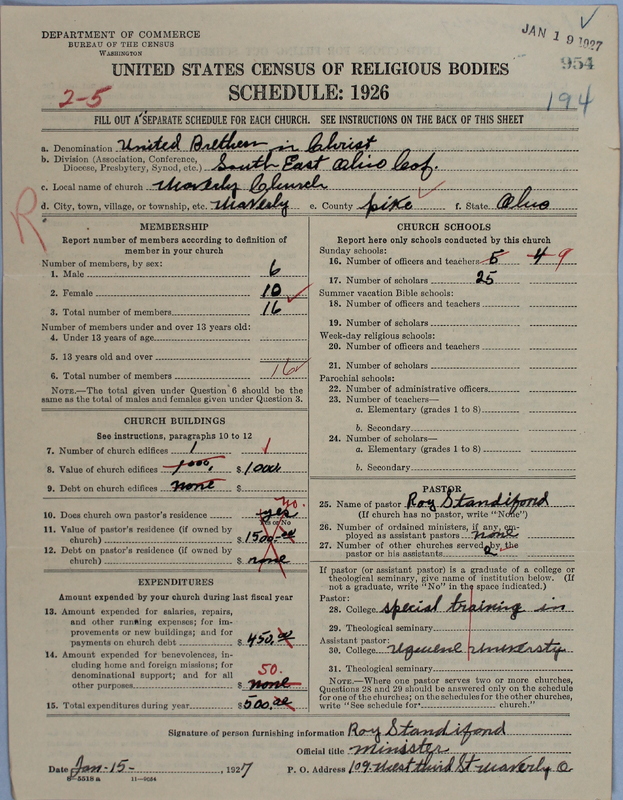 DEPARTMENT OF COMMERCE
BUREAU OF THE CENSUS
WASHINGTON
JAN 19 1927
954
UNITED STATES CENSUS OF RELIGIOUS BODIES
2-5
SCHEDULE: 1926
194
FILL OUT A SEPARATE SCHEDULE FOR EACH CHURCH. SEE INSTRUCTIONS ON THE BACK OF THIS SHEET
a. Denomination United Brethern in Christ
b. Division (Association, Conference, Diocese, Presbytery, Synod, etc.) South East Ohio Cof.
c. Local name of church Waverly Church
d. City, town, village, or township, etc. Waverly e. County pike f. State Ohio
R
MEMBERSHIP
Report number of members according to definition of
member in your church
Number of members, by sex:
1. Male 6
2. Female 10
3. Total number of members 16
Number of members under and over 13 years old:
4. Under 13 years of age
5. 13 years old and over
6. Total number of members 16
NOTE.—The total given under Question 6 should be
same as the total of males and females given under Question 3.
CHURCH BUILDINGS
See instructions, paragraphs 10 to 12
7. Number of church edifices 1 1
8. Value of church edifices 1000, $ 1000
9. Debt on church edifices none $
10. Does church own pastor's residence yes no.
Yes or No
11. Value of pastor's residence (if owned by
church) $ 1500.00
12. Debt on pastor's residence (if owned by
church) $ none
EXPENDITURES
Amount expended by your church during last fiscal year
13. Amount expended for salaries, repairs,
and other running expenses; for im-
provements or new buildings; and for
payments on church debt $ 450.00
14. Amount expended for benevolences, in-
cluding home and foreign missions; for
denominational support; and for all
other purposes $ none 50.
15. Total expenditures during year $ 500.00
CHURCH SCHOOLS
Report here only schools conducted by this church
Sunday schools:
16. Number of officers and teachers 5 4 9
17. Number of scholars 25
Summer vacation Bible schools:
18. Number of officers and teachers
19. Number of scholars
Week-day religious schools:
20. Number of officers and teachers
21. Number of scholars
Parochial schools:
22. Number of administrative officers
23. Number of teachers—
a. Elementary (grades 1 to 8)
b. Secondary
24. Number of scholars—
a. Elementary (grades 1 to 8)
b. Secondary
PASTOR
25. Name of pastor Roy Standifond
(If church has no pastor, write "None")
26. Number of ordained ministers, if any, em-
ployed as assistant pastors none
27. Number of other churches served by the
pastor or his assistants 2
If pastor (or assistant pastor) is a graduate of a college or
theological seminary, give name of institution below. (If
not a graduate, write "No" in the space indicated.)
Pastor:
28. College special training in
29. Theological seminary
Assistant pastor:
30. College University
31. Theological seminary
NOTE.—Where one pastor serves two or more churches,
Questions 28 and 29 should be answered only on the schedule
for one of the churches; on the schedules for the other churches,
write "See schedule for church."
Signature of person furnishing information Roy Standifond
Official title minister
Date Jan-15-, 1927 P. O. Address 109 West third St Waverly O.
8-5518 a 11—9684